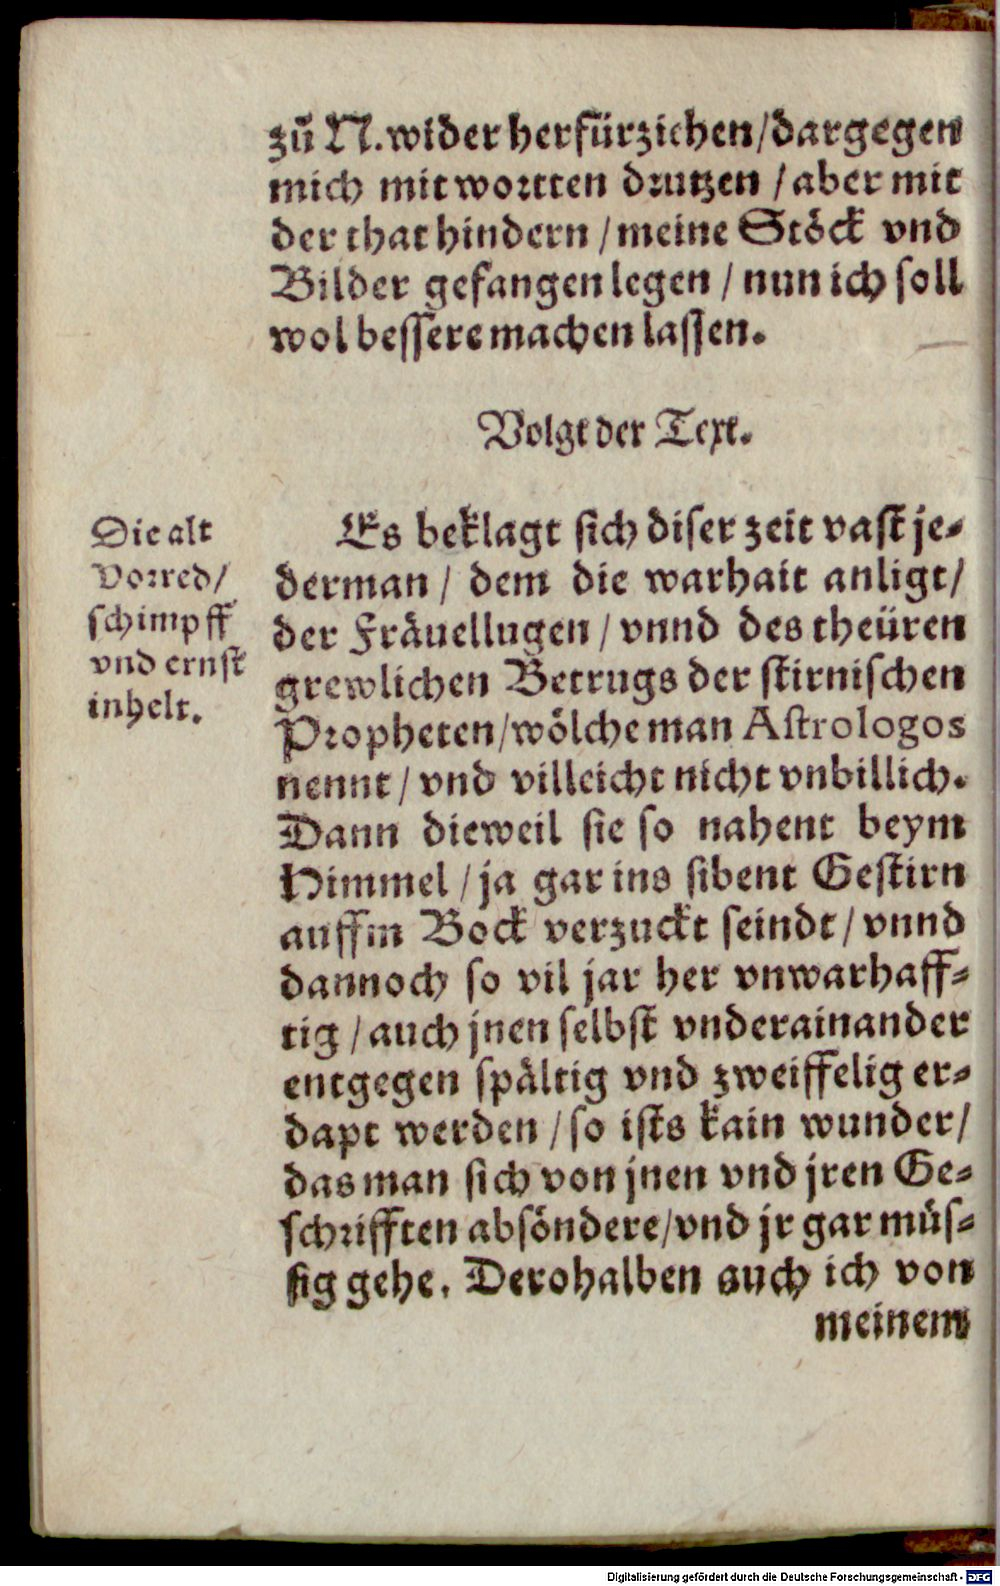 zů N. wider herfürziehen/dargegen
mich mit wortten drutzen / aber mit
der that hindern / meine Stöck vnd
Bilder gefangen legen / nun ich soll
wol bessere machen lassen.
Volgt der Text.
Die alt
Vorred/
schimpff
vnd ernst
inhelt.
Es beklagt sich diser zeit vast je-
derman / dem die warhait anligt/
der Fräuellugen / vnnd des theüren
grewlichen Betrugs der stirnischen
Propheten/wölche man Astrologos
nennt / vnd villeicht nicht vnbillich.
Dann dieweil sie so nahent beym
Himmel / ja gar ins sibent Gestirn
auffm Bock verzuckt seindt / vnnd
dannoch so vil jar her vnwarhaff-
tig / auch jnen selbst vnderainander
entgegen spältig vnd zweiffelig er-
dapt werden / so ists kain wunder/
das man sich von jnen vnd jren Ge-
schrifften absöndere/vnd jr gar müs-
sig gehe. Derohalben auch ich von
meinem
Digitalisierung gefördert durch die Deutsche Forschungsgemeinschaft - DFG